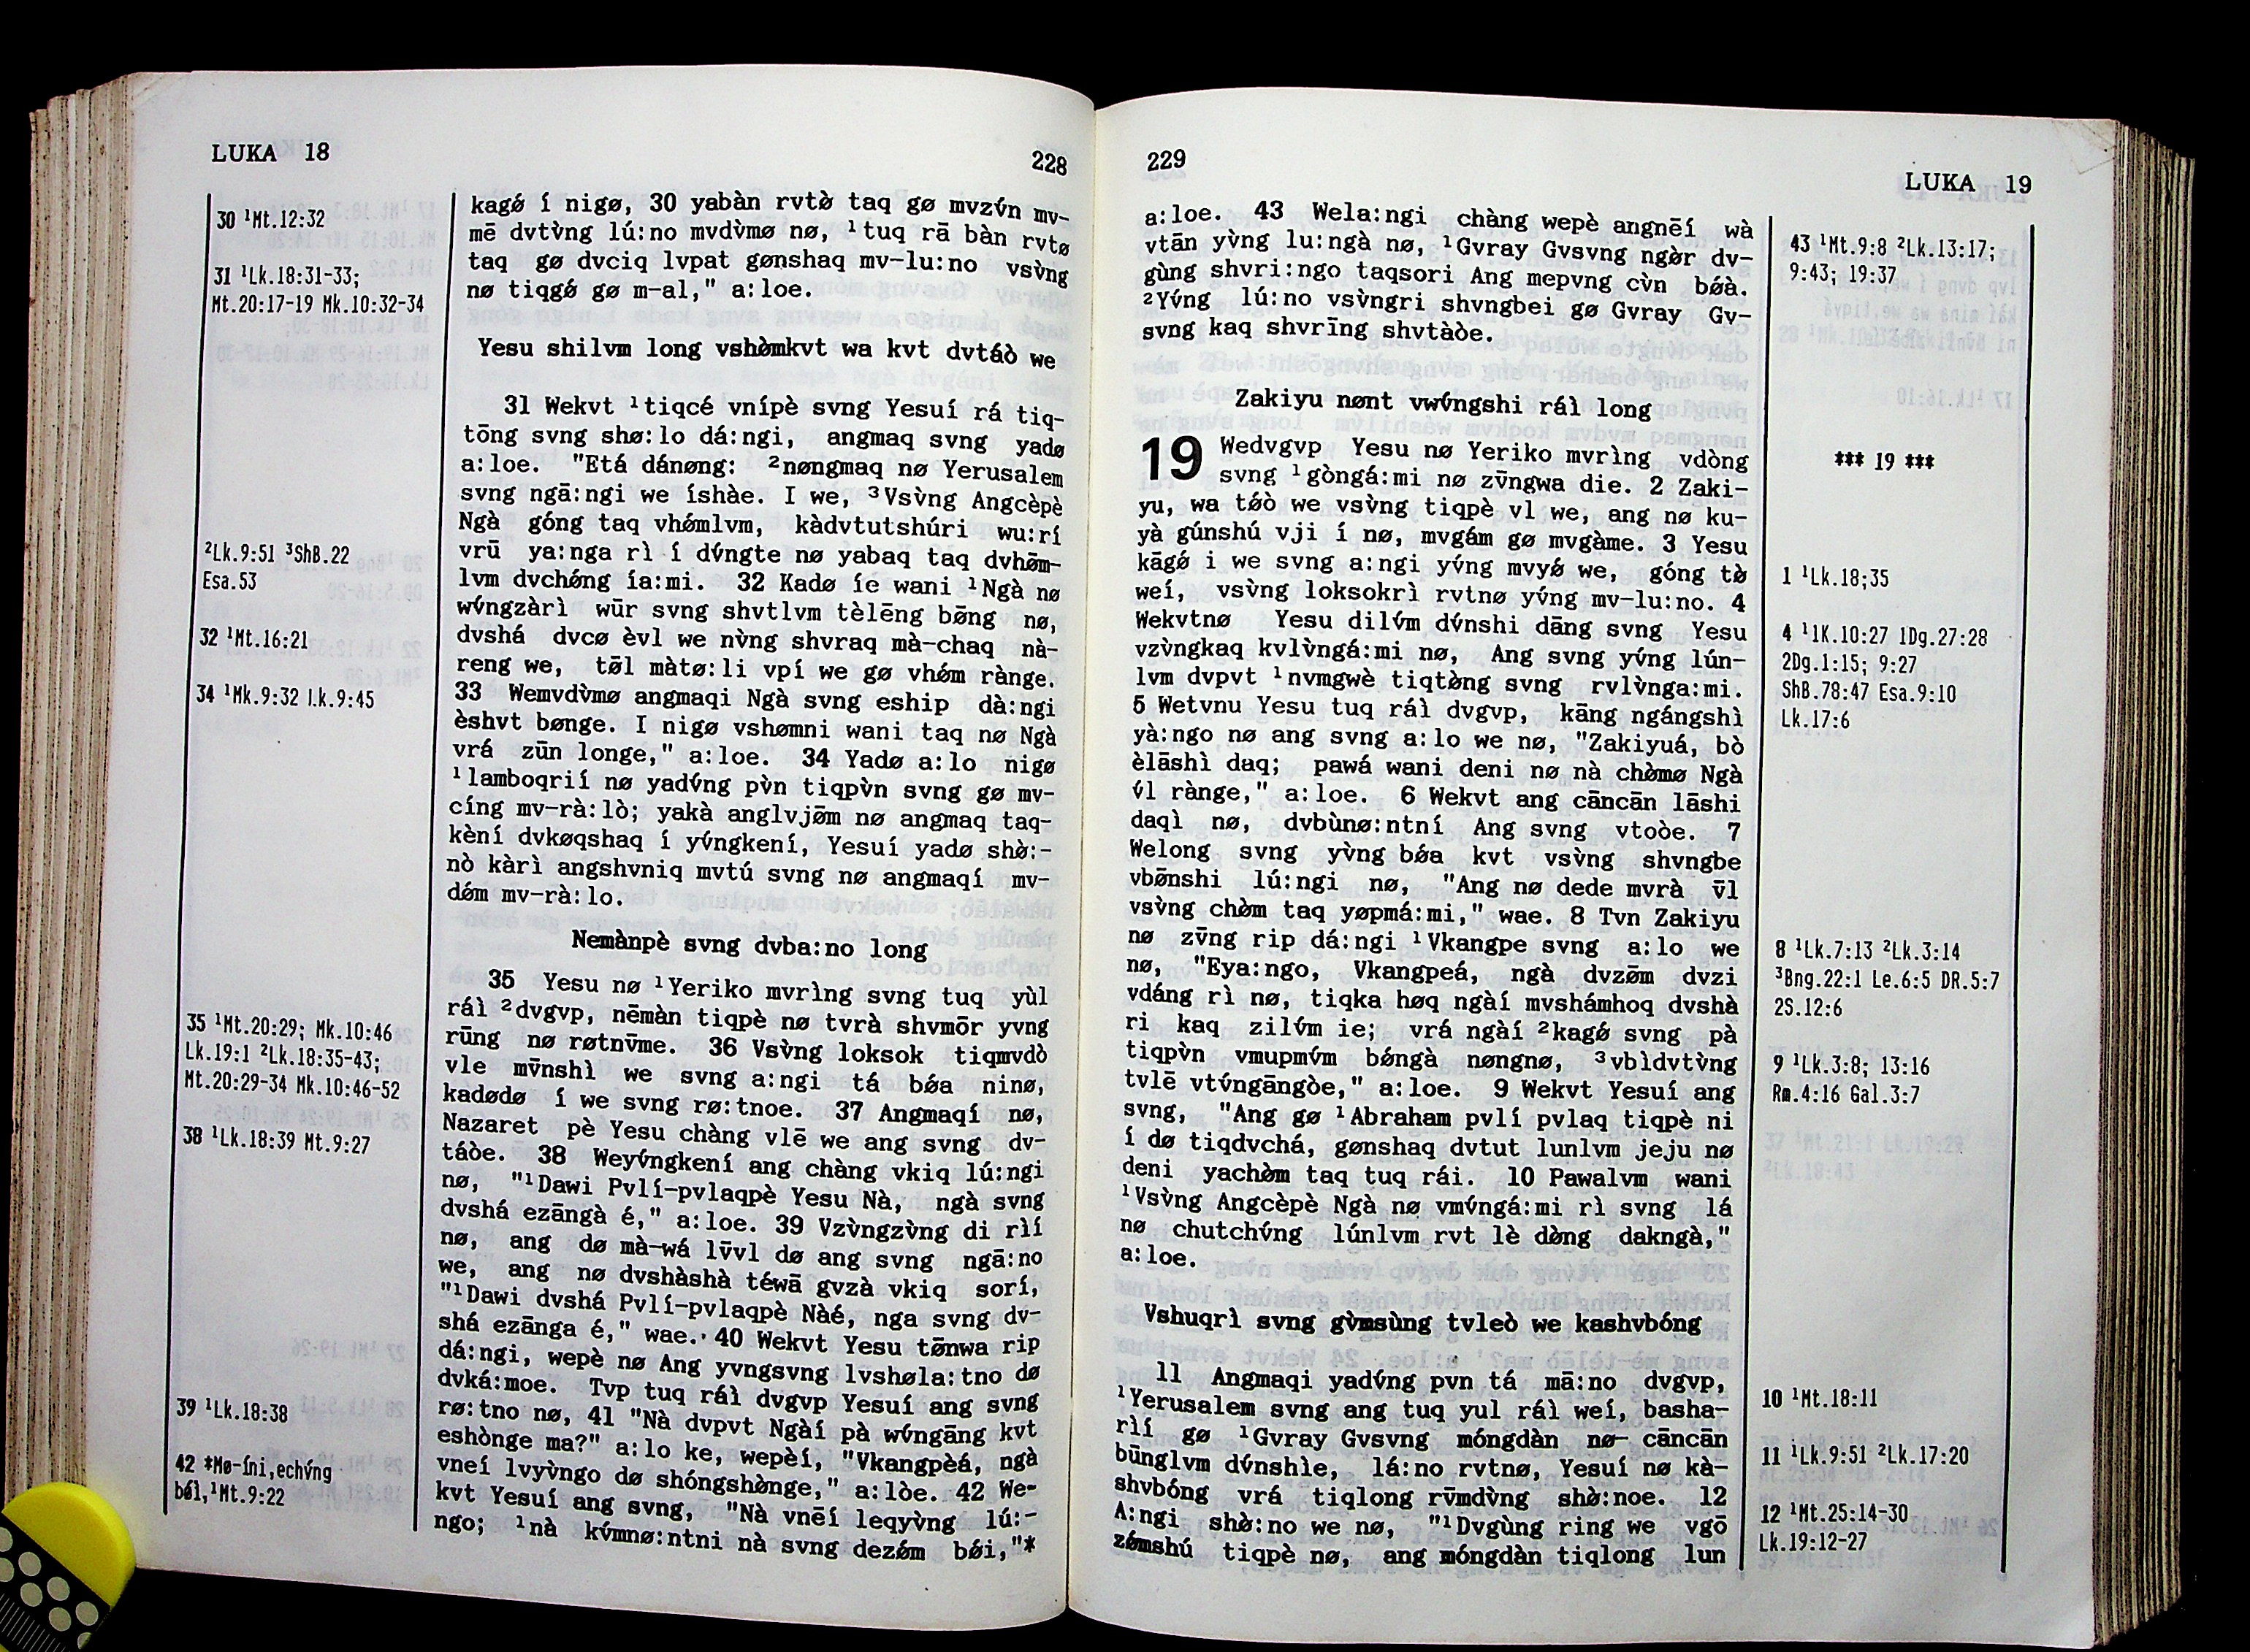 LUKA 18
228
30 ¹Mt.12:32
31 ¹Lk.18:31-33;
Mt.20:17-19 Mk.10:32-34
²Lk.9:51 ³ShB.22
Esa.53
32 ¹Mt.16:21
34 ¹Mk.9:32 Lk.9:45
35 ¹Mt.20:29; Mk.10:46
Lk.19:1 ²Lk.18:35-43;
Mt.20:29-34 Mk.10:46-52
38 ¹Lk.18:39 Mt.9:27
39 ¹Lk.18:38
42 *Mø-íni,echv́ng
bǿì,¹Mt.9:22
kagǿ í nigø, 30 yabàn rvtø̀ taq gø mvzv́n mv-
mē dvtv̀ng lú:no mvdv̀mø nø, ¹tuq rā bàn rvtø
taq gø dvciq lvpat gønshaq mv-lu:no vsv̀ng
nø tiqgǿ gø m-al," a:loe.
Yesu shilvm long vshø̀mkvt wa kvt dvtáò we
31 Wekvt ¹tiqcé vnípè svng Yesuí rá tiq-
tōng svng shø:lo dá:ngi, angmaq svng yadø
a:loe. "Etá dánøng: ²nøngmaq nø Yerusalem
svng ngā:ngi we íshàe. I we, ³Vsv̀ng Angcèpè
Ngà góng taq vhǿmlvm, kàdvtutshúri wu:rí
vrū ya:nga rì í dv́ngte nø yabaq taq dvhø̄m-
lvm dvchǿng ía:mi. 32 Kadø íe wani ¹Ngà nø
wv́ngzàrì wūr svng shvtlvm tèlēng bø̄ng nø,
dvshá dvcø èvl we nv̀ng shvraq mà-chaq nà-
reng we, tø̄l màtø:li vpí we gø vhǿm rànge.
33 Wemvdv̀mø angmaqi Ngà svng eship dà:ngi
èshvt bønge. I nigø vshømni wani taq nø Ngà
vrá zūn longe," a:loe. 34 Yadø a:lo nigø
¹lamboqrií nø yadv́ng pv̀n tiqpv̀n svng gø mv-
cíng mv-rà:lò; yakà anglvjø̄m nø angmaq taq-
kèní dvkøqshaq í yv́ngkení, Yesuí yadø shø̀:-
nò kàrì angshvniq mvtú svng nø angmaqí mv-
dǿm mv-rà:lo.
Nemànpè svng dvba:no long
35 Yesu nø ¹Yeriko mvrìng svng tuq yùl
ráì ²dvgvp, nēmàn tiqpè nø tvrà shvmōr yvng
rūng nø røtnv̄me. 36 Vsv̀ng loksok tiqmvdò
vle mv̄nshì we svng a:ngi tá bǿa ninø,
kadødø í we svng rø:tnoe. 37 Angmaqí nø,
Nazaret pè Yesu chàng vlē we ang svng dv-
táòe. 38 Weyv́ngkení ang chàng vkiq lú:ngi
nø, "¹Dawi Pvlí-pvlaqpè Yesu Nà, ngà svng
dvshá ezāngà é," a:loe. 39 Vzv̀ngzv̀ng di rìí
nø, ang dø mà-wá lv̄vl dø ang svng ngā:no
we, ang nø dvshàshà téwā gvzà vkiq sorí,
"¹Dawi dvshá Pvlí-pvlaqpè Nàé, nga svng dv-
shá ezānga é," wae. 40 Wekvt Yesu tø̄nwa rip
dá:ngi, wepè nø Ang yvngsvng lvshøla:tno dø
dvká:moe. Tvp tuq ráì dvgvp Yesuí ang svng
rø:tno nø, 41 "Nà dvpvt Ngàí pà wv́ngāng kvt
eshònge ma?" a:lo ke, wepèí, "Vkangpèá, ngà
vneí lvyv̀ngo dø shóngshø̀nge," a:lòe. 42 We-
kvt Yesuí ang svng, "Nà vnēí leqyv̀ng lú:-
ngo; ¹nà kv́mnø:ntni nà svng dezǿm bǿi,"*
229
LUKA 19
a:loe. 43 Wela:ngi chàng wepè angnēí wà
vtān yv̀ng lu:ngà nø, ¹Gvray Gvsvng ngø̀r dv-
gùng shvri:ngo taqsori Ang mepvng cv̀n bǿà.
²Yv́ng lú:no vsv̀ngri shvngbei gø Gvray Gv-
svng kaq shvrīng shvtàòe.
Zakiyu nønt vwv́ngshi ráì long
19 Wedvgvp Yesu nø Yeriko mvrìng vdòng
svng ¹gòngá:mi nø zv̄ngwa die. 2 Zaki-
yu, wa tǿò we vsv̀ng tiqpè vl we, ang nø ku-
yà gúnshú vji í nø, mvgám gø mvgàme. 3 Yesu
kāgǿ i we svng a:ngi yv́ng mvyǿ we, góng tø̀
weí, vsv̀ng loksokrì rvtnø yv́ng mv-lu:no. 4
Wekvtnø Yesu dilv́m dv́nshi dāng svng Yesu
vzv̀ngkaq kvlv̀ngá:mi nø, Ang svng yv́ng lún-
lvm dvpvt ¹nvmgwè tiqtø̀ng svng rvlv̀nga:mi.
5 Wetvnu Yesu tuq ráì dvgvp, kāng ngángshì
yà:ngo nø ang svng a:lo we nø, "Zakiyuá, bò
èlāshì daq; pawá wani deni nø nà chø̀mø Ngà
v́l rànge," a:loe. 6 Wekvt ang cāncān lāshi
daqì nø, dvbùnø:ntní Ang svng vtoòe. 7
Welong svng yv̀ng bǿa kvt vsv̀ng shvngbe
vbø̄nshi lú:ngi nø, "Ang nø dede mvrà v̄l
vsv̀ng chø̀m taq yøpmá:mi," wae. 8 Tvn Zakiyu
nø zv̄ng rip dá:ngi ¹Vkangpe svng a:lo we
nø, "Eya:ngo, Vkangpeá, ngà dvzø̄m dvzi
vdáng rì nø, tiqka høq ngàí mvshámhoq dvshà
ri kaq zilv́m ie; vrá ngàí ²kagǿ svng pà
tiqpv̀n vmupmv́m bǿngà nøngnø, ³vbìdvtv̀ng
tvlē vtv́ngāngòe," a:loe. 9 Wekvt Yesuí ang
svng, "Ang gø ¹Abraham pvlí pvlaq tiqpè ni
í dø tiqdvchá, gønshaq dvtut lunlvm jeju nø
deni yachø̀m taq tuq rái. 10 Pawalvm wani
¹Vsv̀ng Angcèpè Ngà nø vmv́ngá:mi rì svng lá
nø chutchv́ng lúnlvm rvt lè dø̀ng dakngà,"
a:loe.
Vshuqrì svng gv̀msùng tvleò we kashvbóng
11 Angmaqi yadv́ng pvn tá mā:no dvgvp,
¹Yerusalem svng ang tuq yul ráì weí, basha-
rìí gø ¹Gvray Gvsvng móngdàn nø cāncān
būnglvm dv́nshìe, lá:no rvtnø, Yesuí nø kà-
shvbóng vrá tiqlong rv̄mdv̀ng shø̀:noe. 12
A:ngi shø̀:no we nø, "¹Dvgùng ring we vgō
zǿmshú tiqpè nø, ang móngdàn tiqlong lun
43 ¹Mt.9:8 ²Lk.13:17;
9:43; 19:37
*** 19 ***
1 ¹Lk.18;35
4 ¹1K.10:27 1Dg.27:28
2Dg.1:15; 9:27
ShB.78:47 Esa.9:10
Lk.17:6
8 ¹Lk.7:13 ²Lk.3:14
³Bng.22:1 Le.6:5 DR.5:7
2S.12:6
9 ¹Lk.3:8; 13:16
Rm.4:16 Gal.3:7
10 ¹Mt.18:11
11 ¹Lk.9:51 ²Lk.17:20
12 ¹Mt.25:14-30
Lk.19:12-27